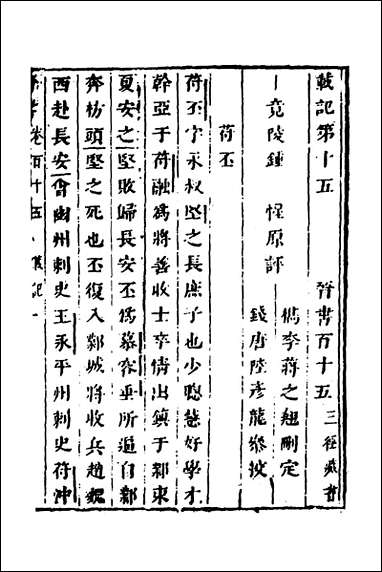 載記第十五 晉書百十五 三徑藏書
竟陵鍾 惺原評
檇李蔣之翹刪定
錢唐陸彥龍叅校
苻丕
苻丕字永叔堅之長庶子也少聰慧好學才
幹亞于苻融為將善收士卒情出鎮于鄴東
夏安之堅敗歸長安丕為慕容垂所逼自鄴
奔枋頭堅之死也丕復入鄴城將收兵趙魏
西赴長安會幽州刺史王永平州刺史苻沖
晉書卷百十五 載記 一